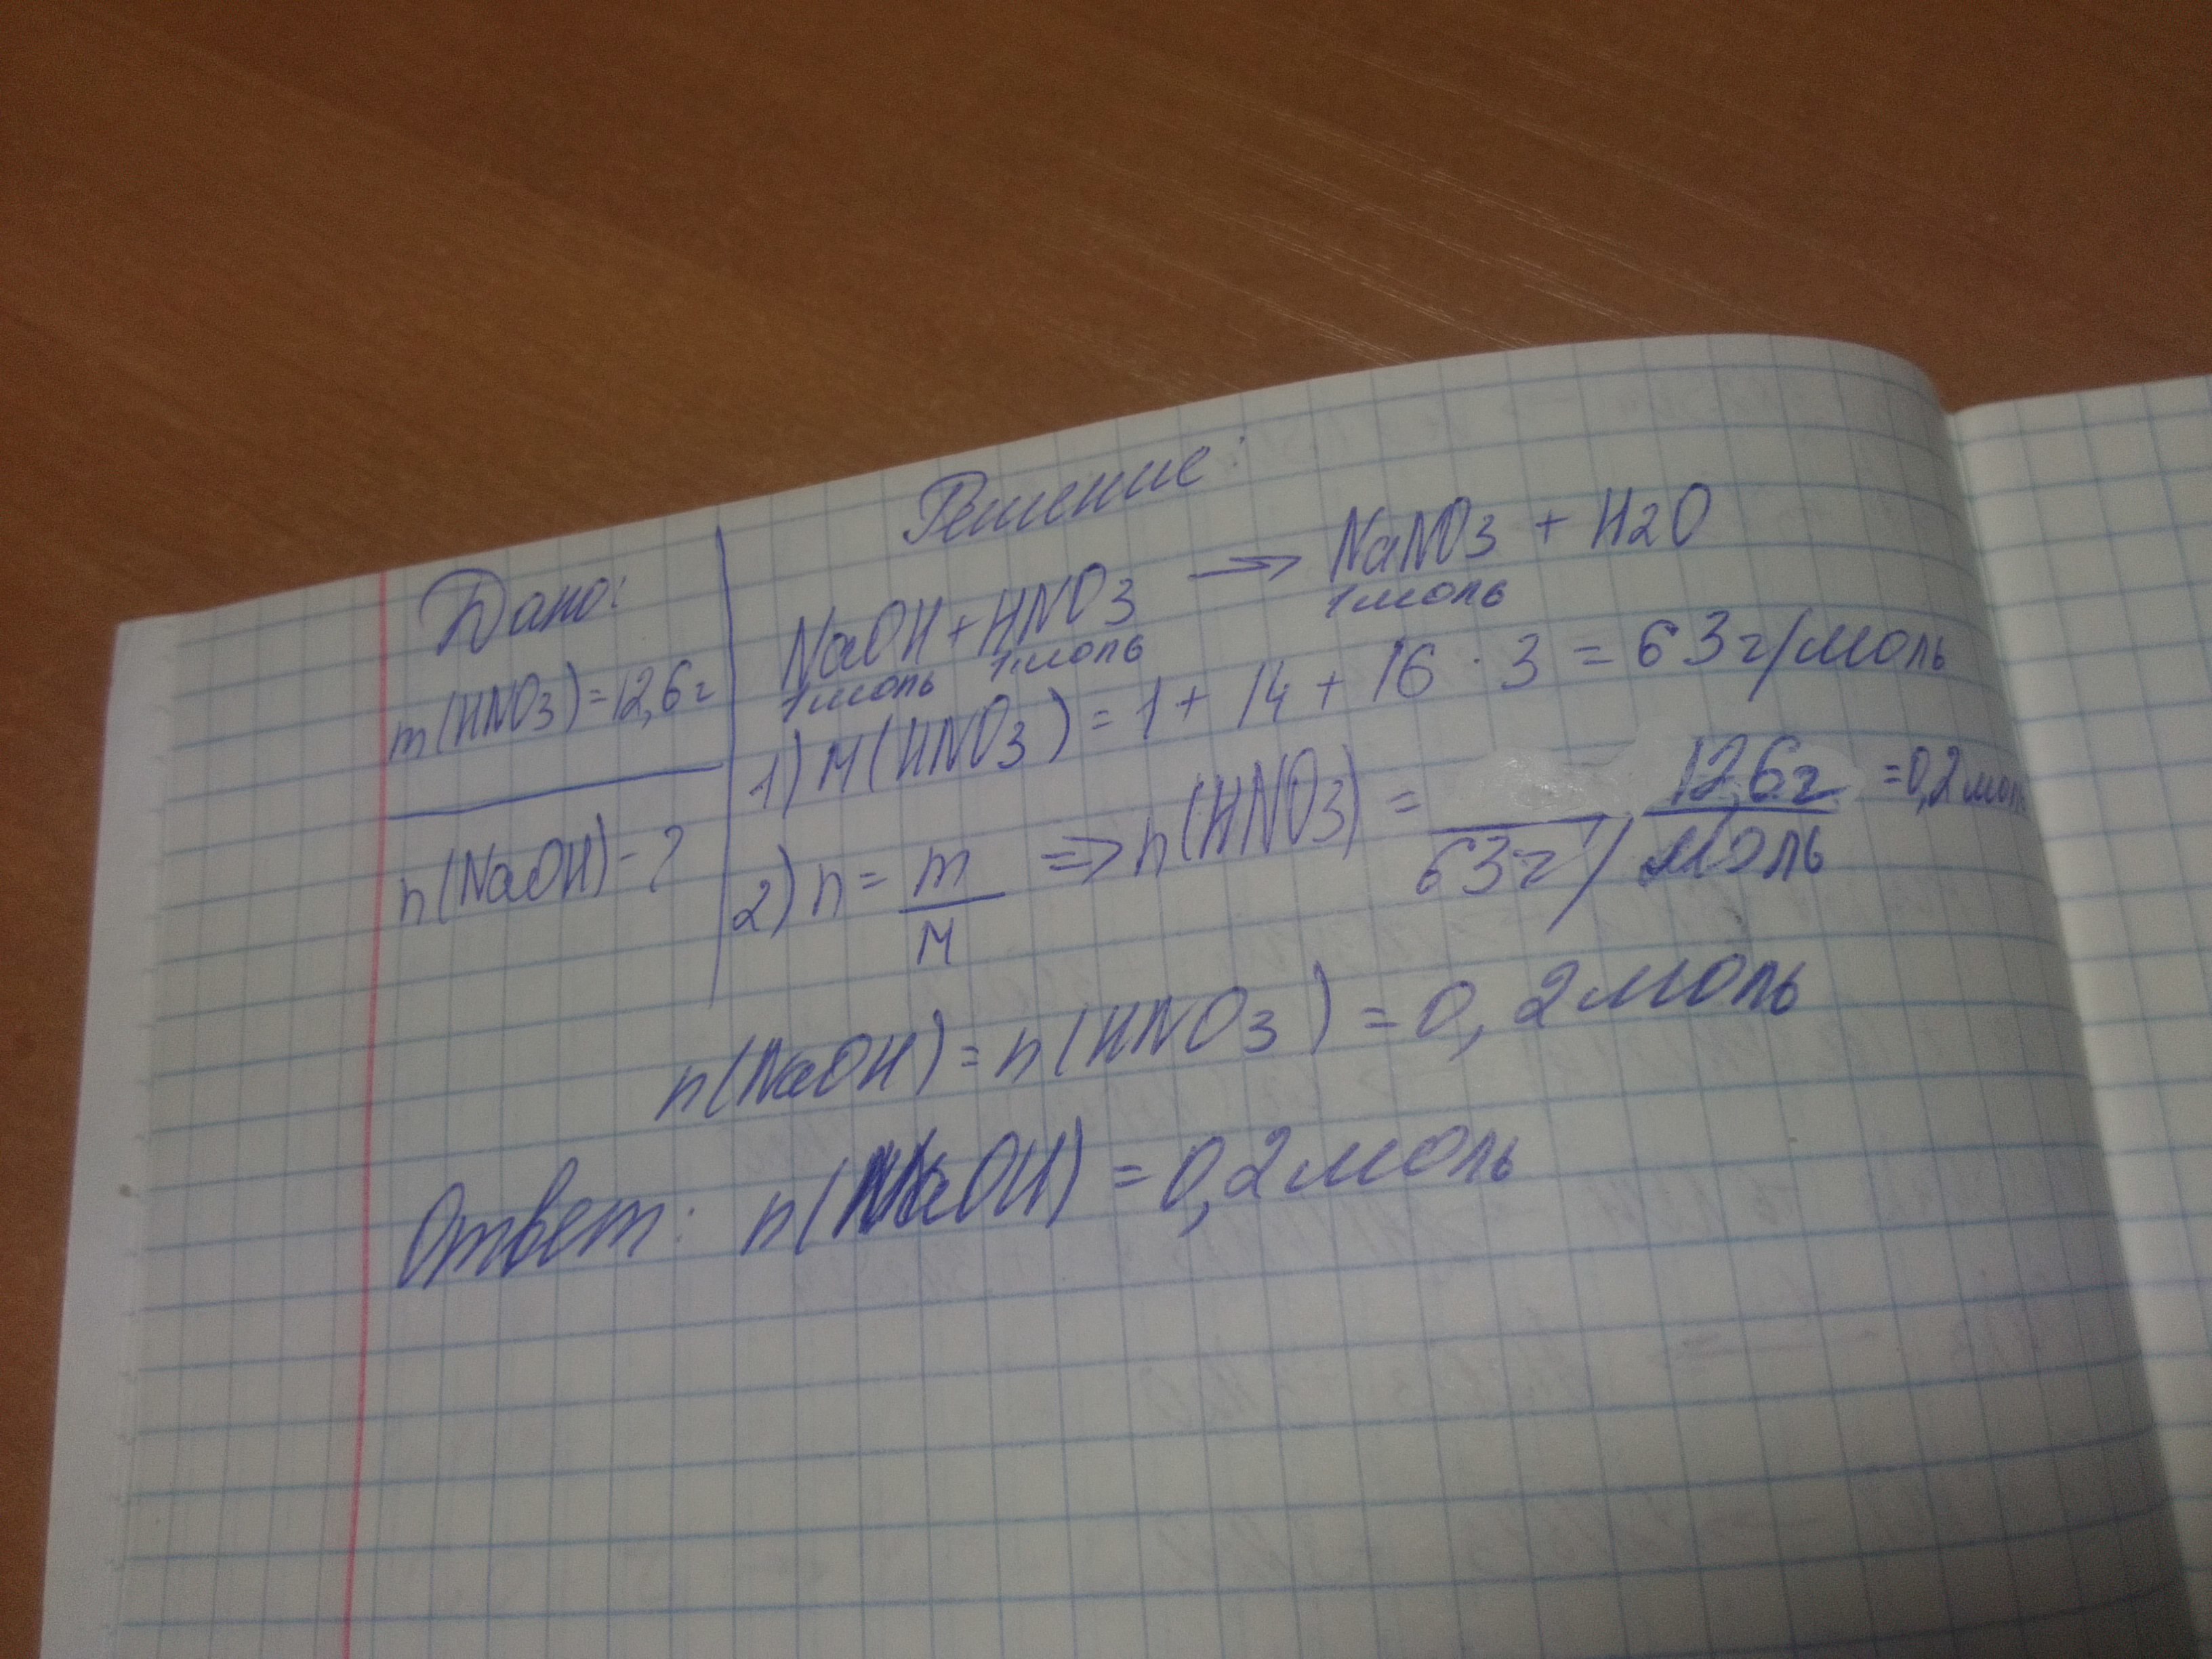 Дано:
m(HNO3)=12,6г
n(NaOH)-?
Решение:
NaOH+HNO3 → NaNO3 + H2O
1моль 1моль 1моль
1) M(HNO3)=1+14+16·3=63г/моль
2) n=m/M => n(HNO3)=12,6г/63г/моль=0,2моль
n(NaOH)=n(HNO3)=0,2моль
Ответ: n(NaOH)=0,2моль